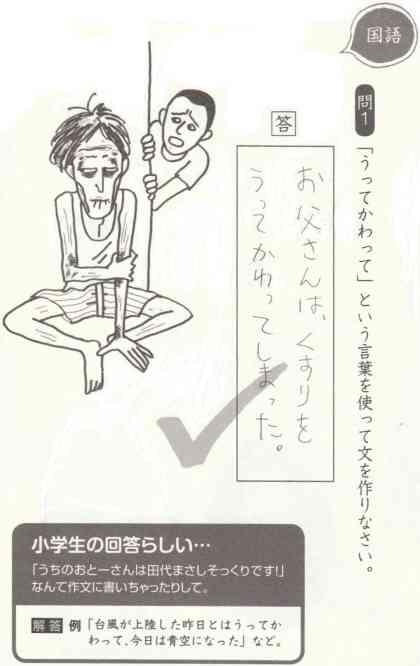 国語
問1
「うってかわって」という言葉を使って文を作りなさい。
答
お父さんは、くすりを
うってかわってしまった。
小学生の回答らしい…
「うちのおとーさんは田代まさしそっくりです!」
なんて作文に書いちゃったりして。
解答例「台風が上陸した昨日とはうってか
わって、今日は青空になった」など。